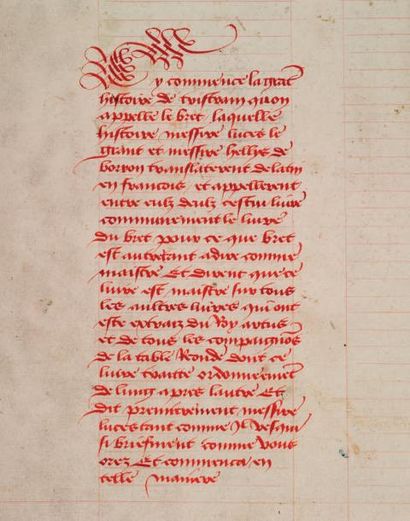 Cy commence la grãt
histoire de tristram quon
appelle le bret laquelle
histoire messire luces le
grant et messire helhys de
borron translaterent de latin
en francois et appellerent
entre eulz deulx cestui livre
communement le livre
du bret pour ce que bret
est autretant a dire comme
maistre Et dirent que ce
livre est maistre sur tous
les aultres livres qui ont
este extraiz du Roy artus
et de tous les compaignõs
de la table Ronde dont ce
livre traitte ordonneemẽt
de lung apres lautre Et
dit premierement messire
luces tant comme Il vesqui
si briefment comme vous
orez Et commenca en
telle maniere